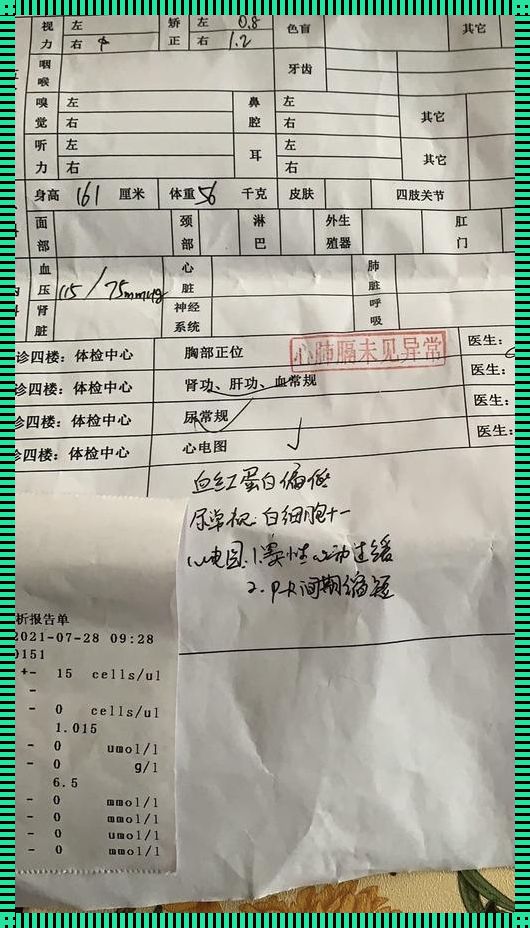 视力 左 矫正 左 0.8 色盲 其它
右 右 1.2
咽喉 牙齿
嗅觉 左 鼻腔 左 其它
右 右
听力 左 耳 左 其它
右 右
身高 161 厘米 体重 56 千克 皮肤 四肢关节
面部 颈部 淋巴 外生殖器 肛门
血压 115/75mmHg 心脏 肺脏
肾脏 神经系统 呼吸
诊四楼：体检中心 胸部正位 心肺膈未见异常 医生：
诊四楼：体检中心 肾功、肝功、血常规 医生：
诊四楼：体检中心 尿常规 医生：
诊四楼：体检中心 心电图 医生：
血红蛋白偏低
尿常规：白细胞+-
心电图：1.窦性心动过缓
2.P-R间期缩短
析报告单
2021-07-28 09:28
0151
+- 15 cells/ul
-
- 0 cells/ul
1.015
- 0 umol/l
- 0 g/l
6.5
- 0 mmol/l
- 0 mmol/l
- 0 umol/l
- 0 mmol/l